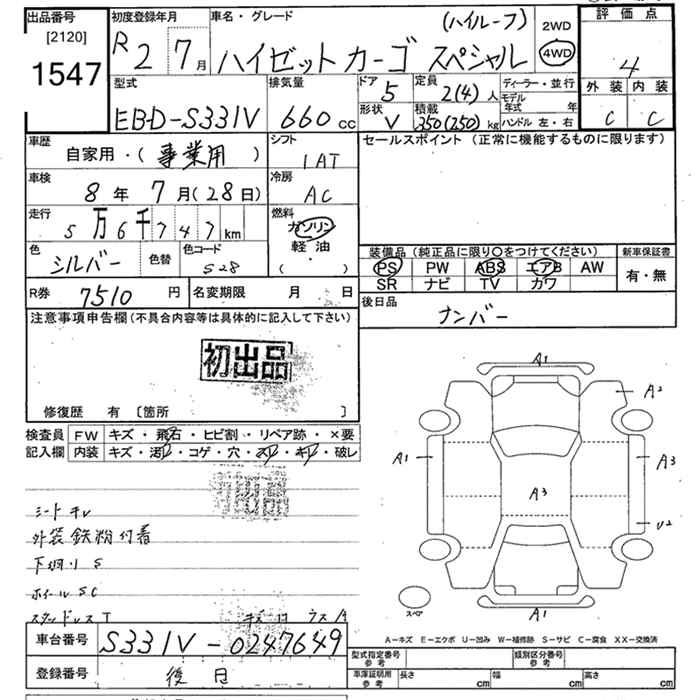 出品番号
[2120]
1547
初度登録年月
R2 7月
車名・グレード
(ハイルーフ)
ハイゼットカーゴ スペシャル
2WD
4WD
評価点
4
外装 内装
C C
型式
EBD-S331V
排気量
660 cc
ドア
5
定員
2(4)人
形状
V
積載
350(250)kg
ディーラー・並行
モデル年式 年
ハンドル 左・右
車歴
自家用・(事業用)
シフト
IAT
セールスポイント (正常に機能するものに限ります)
車検
8年 7月(28日)
冷房
AC
走行
5万6千747km
燃料
ガソリン
軽油
( )
色
シルバー
色替
色コード
S28
装備品 (純正品に限り〇をつけてください)
PS PW ABS エアB AW
SR ナビ TV カワ
新車保証書
有・無
R券
7510円
名変期限 月 日
後日品
ナンバー
注意事項申告欄(不具合内容等は具体的に記入して下さい)
初出品
修復歴 有 〔箇所 〕
検査員記入欄
FW キズ・飛石・ヒビ割・リペア跡・×要
内装 キズ・汚・コゲ・穴・スレ・キレ・破レ
シートキレ
外装鉄粉付着
下廻りS
ホイールSC
スタッドレスT
A1
A2
A1
A3
A3
U2
A1
スペア
A-キズ E-エクボ U-凹み W-補修跡 S-サビ C-腐食 XX-交換済
車台番号
S331V-0247649
登録番号
後日
型式指定番号
参考
類別区分番号
参考
車庫証明用
参考
長さ cm
幅 cm
高さ cm